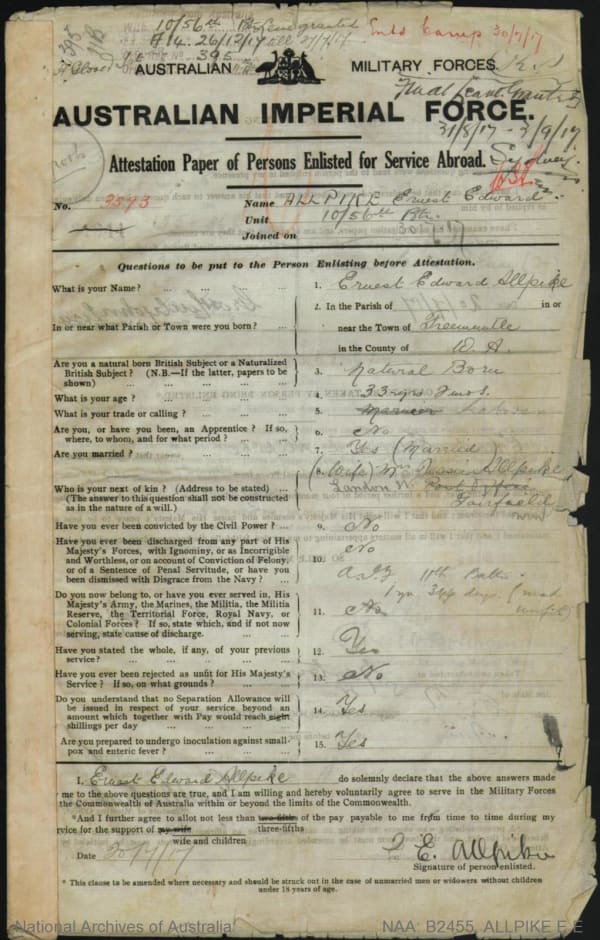 10/56th
14. 26/12/17
till 27/7/17
Into Camp 30/7/17
395
AUSTRALIAN MILITARY FORCES.
Final Leave
AUSTRALIAN IMPERIAL FORCE.
31/8/17 - 3/9/17
Attestation Paper of Persons Enlisted for Service Abroad.
Sydney
No. 3573 Name ALLPIKE Ernest Edward
Unit 10/56th
Joined on
Questions to be put to the Person Enlisting before Attestation.
What is your Name? ... ... ... 1. Ernest Edward Allpike
2. In the Parish of in or
In or near what Parish or Town were you born? ... near the Town of Freemantle
in the County of W.A.
Are you a natural born British Subject or a Naturalized
British Subject? (N.B.—If the latter, papers to be
shown) ... ... ... ... 3. Natural Born
What is your age? ... ... ... 4. 33 yrs
What is your trade or calling? ... ... 5. Mariner
Are you, or have you been, an Apprentice? If so,
where, to whom, and for what period? ... 6. No
Are you married? ... ... ... 7. Yes (Married)
(Wife) Mrs Allpike
Who is your next of kin? (Address to be stated) ...
(The answer to this question shall not be constructed
as in the nature of a will.)
London Post Office
Fairfield
Have you ever been convicted by the Civil Power? ... 9. No
Have you ever been discharged from any part of His
Majesty's Forces, with Ignominy, or as Incorrigible
and Worthless, or on account of Conviction of Felony,
or of a Sentence of Penal Servitude, or have you
been dismissed with Disgrace from the Navy? ... 10. No
Do you now belong to, or have you ever served in, His
Majesty's Army, the Marines, the Militia, the Militia
Reserve, the Territorial Force, Royal Navy, or
Colonial Forces? If so, state which, and if not now
serving, state cause of discharge. ... 11. No
11th
unfit)
Have you stated the whole, if any, of your previous
service? ... ... ... ... 12. Yes
Have you ever been rejected as unfit for His Majesty's
Service? If so, on what grounds? ... 13. No
Do you understand that no Separation Allowance will
be issued in respect of your service beyond an
amount which together with Pay would reach eight
shillings per day ... ... ... 14. Yes
Are you prepared to undergo inoculation against small-
pox and enteric fever? ... ... 15. Yes
I, Ernest Edward Allpike do solemnly declare that the above answers made
me to the above questions are true, and I am willing and hereby voluntarily agree to serve in the Military Forces
the Commonwealth of Australia within or beyond the limits of the Commonwealth.
*And I further agree to allot not less than two-fifths of the pay payable to me from time to time during my
three-fifths
rvice for the support of my wife
wife and children
E. E. Allpike
Date 20/7/17
Signature of person enlisted.
* This clause to be amended where necessary and should be struck out in the case of unmarried men or widowers without children
under 18 years of age.
National Archives of Australia NAA: B2455, ALLPIKE E E